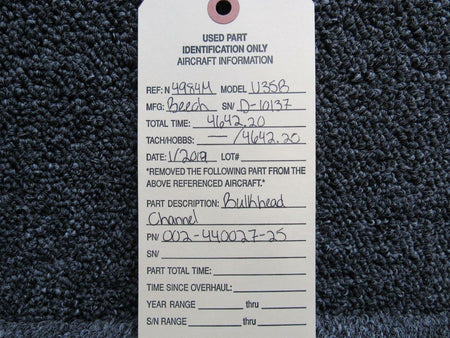 USED PART
IDENTIFICATION ONLY
AIRCRAFT INFORMATION
REF: N 4984M MODEL V35B
MFG: Beech SN/ D-10137
TOTAL TIME: 4642.20
TACH/HOBBS: — /4642.20
DATE: 1/2019 LOT#
*REMOVED THE FOLLOWING PART FROM THE
ABOVE REFERENCED AIRCRAFT.*
PART DESCRIPTION: Bulkhead
Channel
PN/ 002-440027-25
SN/
PART TOTAL TIME:
TIME SINCE OVERHAUL:
YEAR RANGE thru
S/N RANGE thru